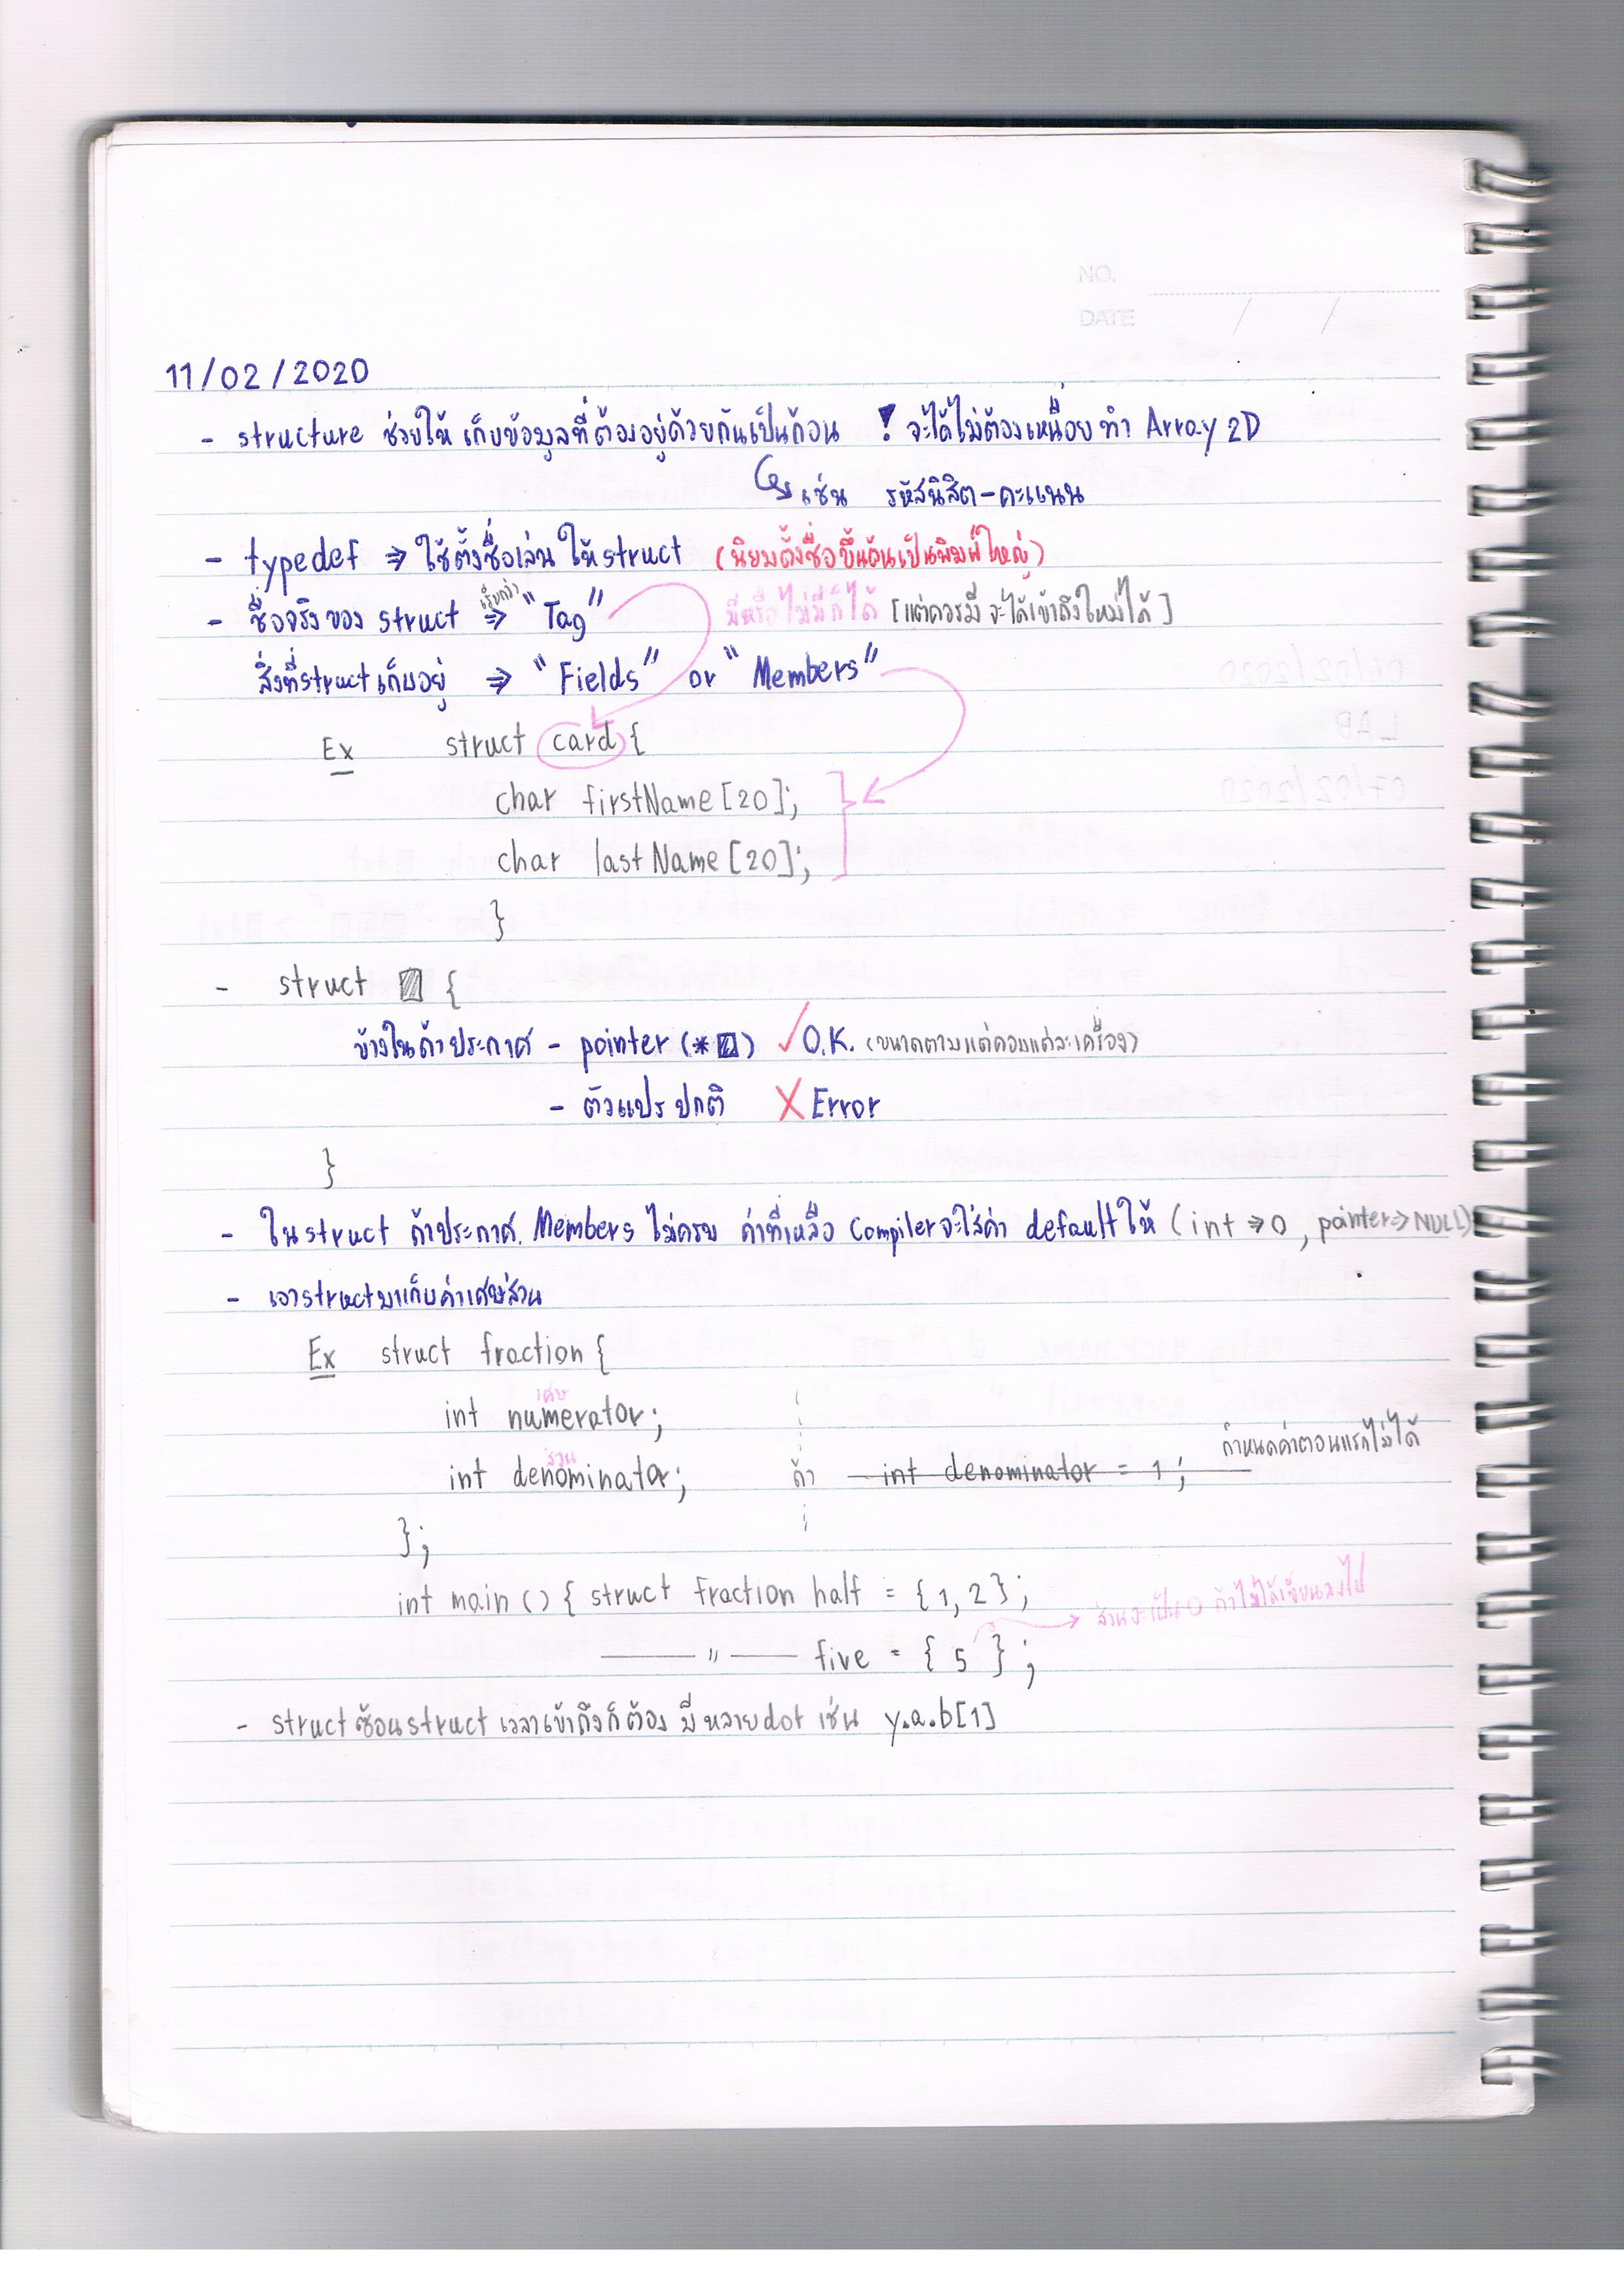 NO.
DATE / /
11/02/2020
- structure ช่วยให้ เก็บข้อมูลที่ต้องอยู่ด้วยกันเป็นก้อน ! จะได้ไม่ต้องเหนื่อย ทำ Array 2D
เช่น รหัสนิสิต-คะแนน
- typedef ⇒ ใช้ตั้งชื่อเล่น ให้ struct (นิยมตั้งชื่อขึ้นต้นเป็นพิมพ์ใหญ่)
- ชื่อจริงของ struct เรียกว่า ⇒ "Tag" มีหรือไม่มีก็ได้ [แต่ควรมี จะได้เข้าถึงใหม่ได้]
สิ่งที่structเก็บอยู่ ⇒ "Fields" or "Members"
Ex struct card {
char firstName[20];
char lastName[20];
}
- struct {
ข้างในถ้าประกาศ - pointer (*) ✓ O.K. (ขนาดตามแต่คอมแต่ละเครื่อง)
- ตัวแปร ปกติ X Error
}
- ใน struct ถ้าประกาศ Members ไม่ครบ ค่าที่เหลือ Compiler จะใส่ค่า default ให้ (int ⇒ 0, pointer ⇒ NULL)
- เอา struct มาเก็บค่าเศษส่วน
Ex struct fraction {
เศษ
int numerator;
ส่วน
int denominator; ถ้า int denominator = 1; กำหนดค่าตอนแรกไม่ได้
};
int main () { struct fraction half = {1, 2};
ส่วนจะเป็น 0 ถ้าไม่ได้เขียนลงไป
—— " —— five = { 5 };
- struct ซ้อน struct เวลาเข้าถึงก็ต้อง มี หลาย dot เช่น y.a.b[1]